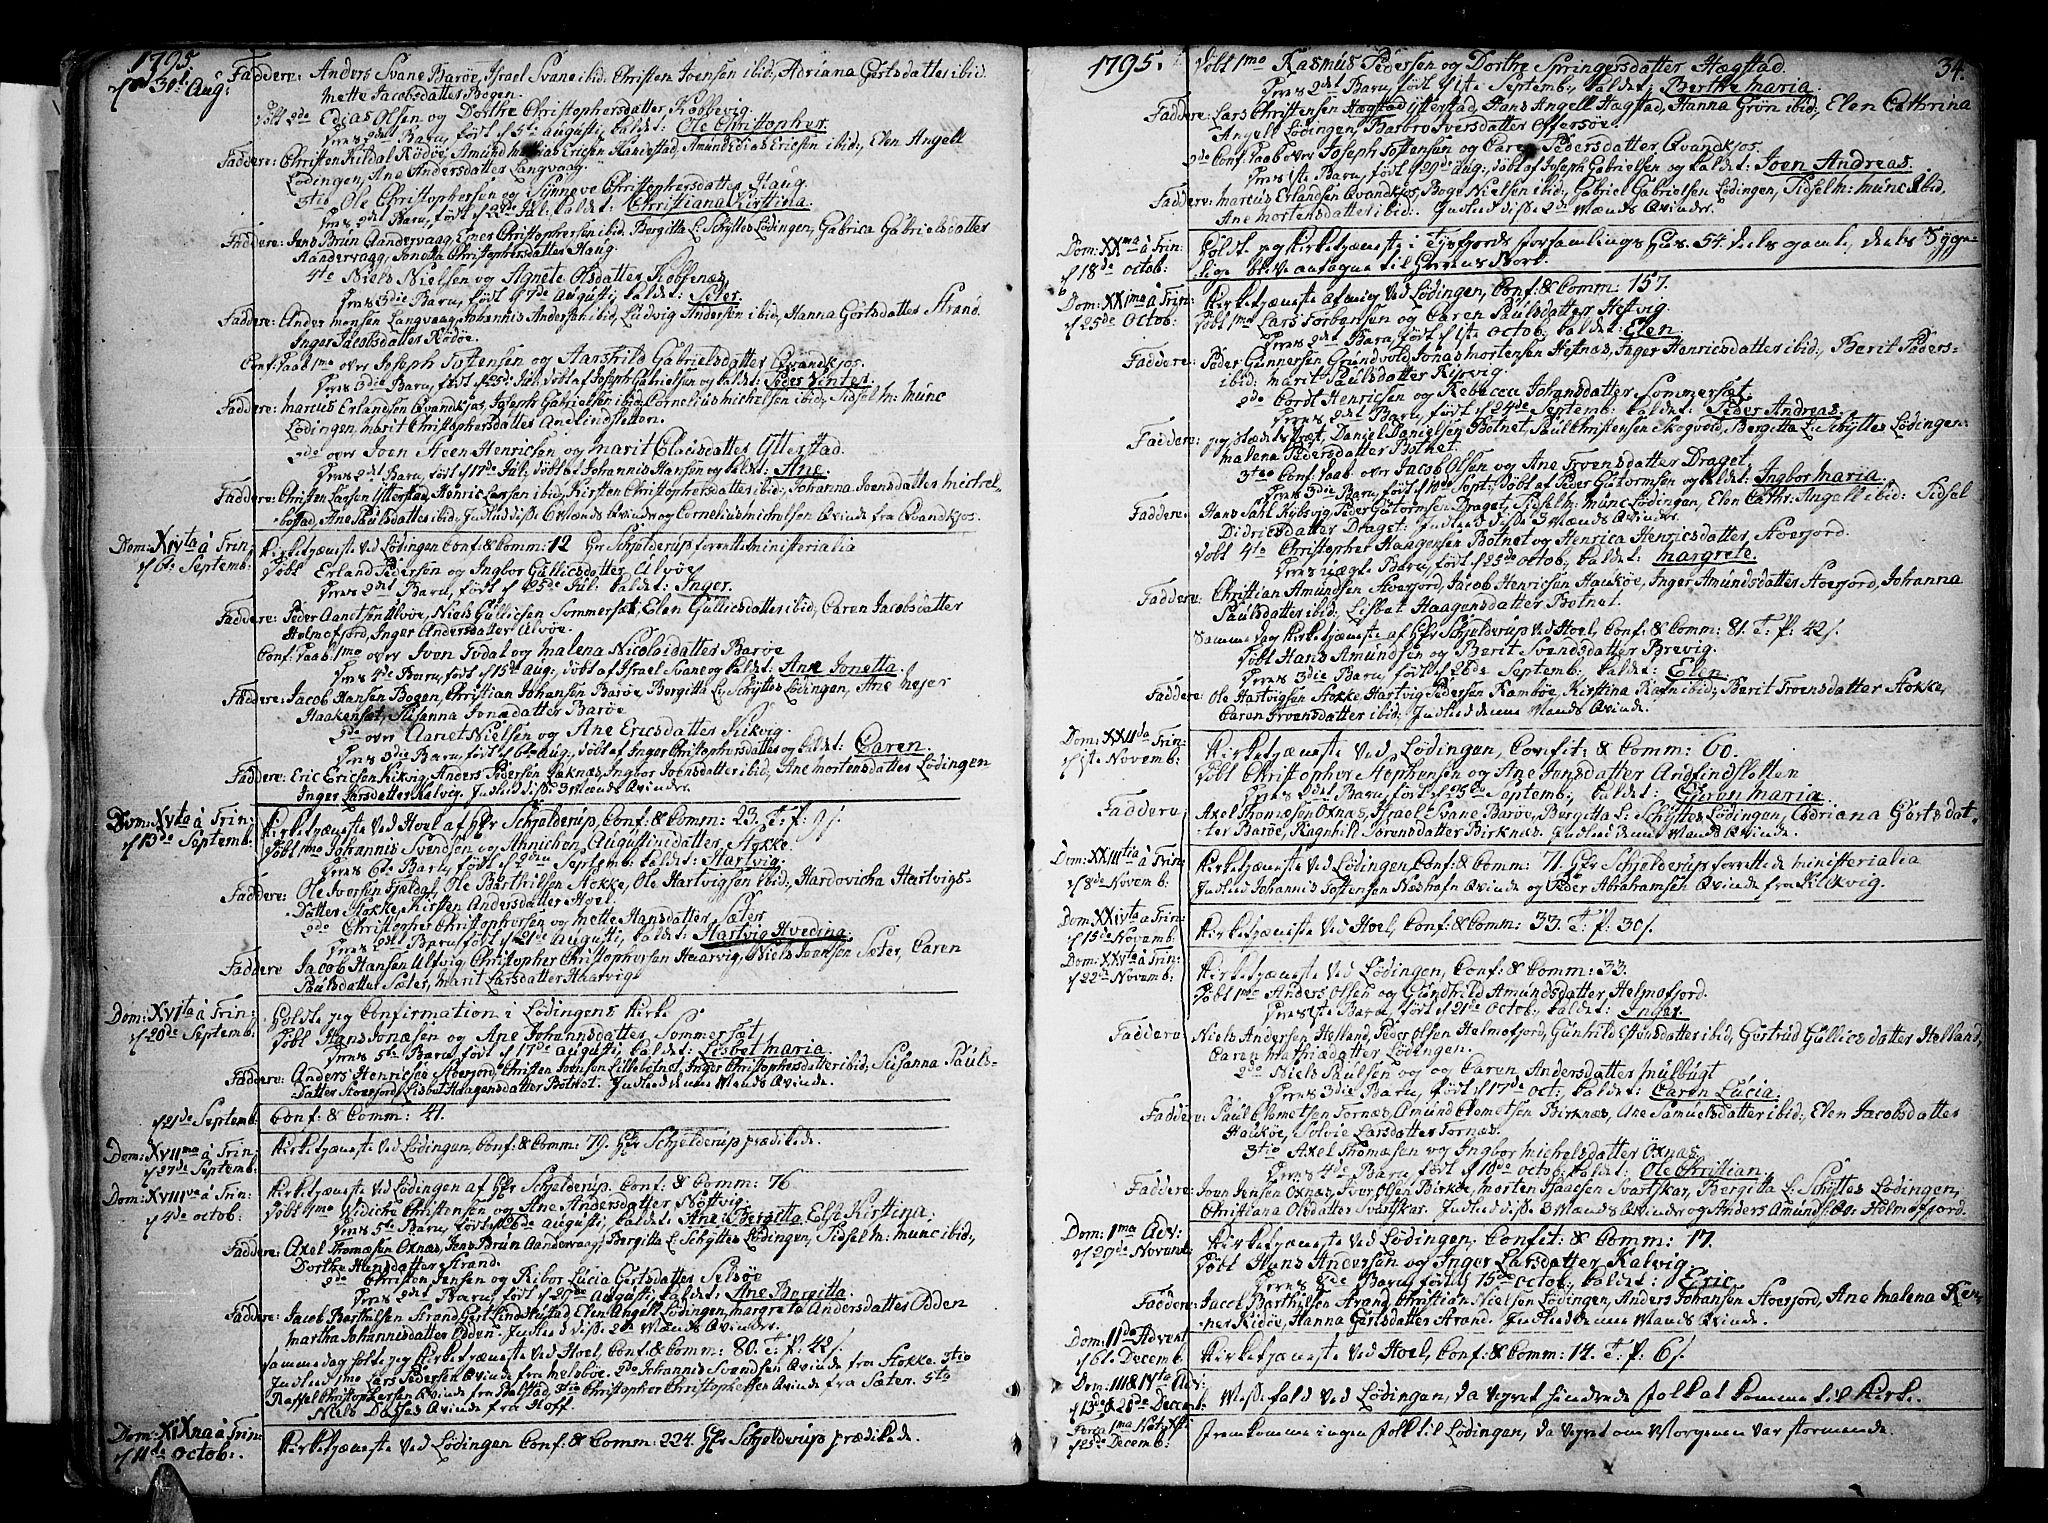 1795.
d. 30te Aug:
Faddere: Anders Svane Barøe, Israel Svane ibid: Christen Joensen ibid; Adriana Gertsdatter ibid:
Mette Jacobsdatter Bogen.
døbt 2de Edias Olsen og Dorthe Christophersdatter, Kobbevig.
deres 2det Barn, født d. 5te Augusti, kaldet: Ole Christopher.
Faddere: Christen Kildal Rödöe, Amund Mathias Ericsen Hanestad, Amund Edias Ericsen ibid:, Elen Angell
Lödingen, Ane Andersdatter Langvaag.
3tio Ole Christophersen og Synneve Christophersdatter, Haug.
deres 2det Barn, født d. Jul: kaldet: Christiana Kirstina.
Faddere: Jens Brun Aandervaag, Enes Christophersen ibid: Bergitta L. Schyttes Lödingen, Gabrica Gabrielsdatter
Aandervaag, Jonetta Christophersdatter Haug
4to Niels Nielsen og Agnete Olsdatter Kobbenæs.
deres 3die Barn, født d. 7de Augusti, kaldet: Peter.
Faddere: Ander Monsen Langvaag, Johannis Andersen ibid, Ludvig Andersen ibid, Hanna Gertsdatter Strand.
Inger Jacobsdatter Rödöe.
Conf: Daab 1mo over Joseph Toftensen og Aarshild Gabrielsdatter Qvandkjos.
deres 3die Barn, født d. 25de Jul: døbt af Joseph Gabrielsen og kaldet: Peder Winter.
Faddere: Marcus Erlandsen Qvandkjos, Joseph Gabrielsen ibid: Cornelius Michelsen ibid:, Sidsel M: Munc
Lödingen, Marit Christophersdatter Anfindsletten.
2do over Joen Steen Henricsen og Marit Clausdatter Ytterstad.
deres 2det Barn, født d. 17de Jul: døbt af Johannis Hansen og kaldet: Ane.
Faddere: Christen Larsen Ytterstad, Henric Larsen ibid, Kirsten Christophersdatter ibid:, Johanna Joensdatter Michel-
bostad, Ane Paulsdatter ibid, Indled disse 6 Mænds Qvinde og Cornelius Michelsen Qvinde fra Qvandkjos.
Dom: XIVta à Trin:
d. 6te Septemb:
Kirketjæneste ved Lödingen Conf: & Comm: 12 Hr Schjelderup forrettet ministerialia
døbt Erland Pedersen og Ingbor Gullicsdatter Ulvöe.
deres 2det Barn, født d. 25de Jul: kaldet: Inger.
Faddere: Peder Aanetsen Ulvøe, Niels Gullicsen Sommerset, Elen Gullicsdatter ibid; Caren Jacobsdatter
Holmofjord, Inger Andersdatter Ulvöe.
Conf: Daab 1mo over Iven Tvdal og Malena Nicolaidatter Baröe
deres 4de Barn, født d. 15de Aug: døbt af Israel Svane og kaldet: Ane Jonetta.
Faddere: Jacob Hansen Bogen, Christian Johansen Baröe, Bergitta L. Schyttes Lödingen, Ane Mejer
Haakenset, Susanna Jonædatter Baröe
2do over Aanet Nielsen og Ane Ericsdatter Kikvig.
deres 3die Barn, født d. 6te Aug: døbt af Inger Christophersdatter og kaldet: Caren.
Faddere: Eric Ericsen Kikvig, Anders Pedersen Saknæs, Ingbor Joensdatter ibid:, Ane Mortensdatter Lödingen
Inger Larsdatter Kalvig. Indled disse 3 Mænds Qvinder.
Dom: XVta à Trin:
d. 13de Septemb:
Kirketjæneste ved Hoel af Hr Schjelderup, Conf: & Comm: 23. T: P: 9/.
døbt 1mo Johannis Svendsen og Athnichen Augustinidatter, Stokke.
deres 6te Barn, født d. Septemb: kaldet: Hartvig.
Faddere: Ole Iversen Fjeldal, Ole Barthilsen Stokke, Ole Hartvigsen ibid:, Hardovicha Hartvigs-
datter Stokke, Kirsten Andersdatter Hoel.
2do Christopher Christophersen og Mette Hansdatter Sæter.
deres 2det Barn, født d. 21de Augusti, kaldet: Hartvig Hveding.
Faddere Jacob Hansen Ulvig, Christopher Christophersen Haarvig, Niels Toensen Sæter, Caren
Paulsdatter Sæter, Marit Larsdatter Haarvig.
Dom: XVIta à Trin:
d. 20de Septemb:
Holdt jeg Confirmation i Lödingens Kirke
døbt Hans Jonæsen og Ane Johannsdatter Sommerset
deres 5te Barn, født d. 17de Augusti, kaldet: Lisbet Maria.
Faddere: Anders Henricsen Stoerjord, Christen Joensen Lillebotnet, Inger Christophersdatter ibid; Susanna Pauls-
datter Stoerjord, Lisbet Haagensdatter Botnet. Indled denne Mands Qvinde.
d. 21de Septemb Conf: & Comm: 41.
Dom: XVIIma à Trin:
d. 27de Septemb: Kirketjæneste ved Lödingen, Conf: & Comm: 79. Hr Schjelderup prædikede.
Dom: XVIIIva à Trin:
d. 4de Octob:
Kirketjæneste ved Lödingen af Hr Schjelderup. Conf: & Comm: 76.
døbt 1mo Vidiche Christensen og Ane Andersdatter Nöttvig.
deres 5te Barn, født d. 26de Augusti, kaldet: Ane Bergitta Else Kirstina.
Faddere: Axel Thomæsen Oxnæs, Jens Brun Aandervaag, Bergitta L. Schyttes Lödingen, Sidsel M: Munc ibid:,
Dorthe Hansdatter Strand.
2do Christen Jensen og Ribor Lucia Gertsdatter Selsöe
deres 2det Barn, født d. 27de Augusti, kaldet: Ane Bergitta.
Faddere: Jacob Barthilsen Strand, Gert Lind Rustad, Elen Angell Lödingen, Margreta Andersdatter Odden
Martha Johannisdatter Odden. Indled disse 2de Mænds Qvinder.
Samme dag holte jeg Kirketjæneste ved Hoel, Conf: & Comm: 80. T: P: 42/.
Indled 1mo Lars Pedersen Qvinde fra Melsbøe. 2do Johannis Svendsen Qvinde fra Stokke. 3tio
Raffel Christophersen Qvinde fra Balstad. 4to Christopher Christophersen Qvinde fra Sæter. 5to
Niels Qvinde fra Hoff.
Dom: XIXna à Trin:
d. 11te Octob: Kirketjæneste ved Lödingen Conf: & Comm: 224. Hr Schjelderup prædikede.
1795.
34.
døbt 1mo Rasmus Pedersen og Dorthe Springersdatter Hægstad.
deres 2det Barn, født d. 9te Septemb: kaldet: Berthe Maria.
Faddere: Lars Christensen Ytterstad, Hans Angell Hægstad, Hanna Grøn ibid; Elen Cathrina
Angel Lödingen, Barbro Iversdatter Offersöe.
2do Conf: Daab over Joseph Toftensen og Caren Pedersdatter Qvandkjos.
deres 1ste Barn, født d. 29de Aug: døbt af Joseph Gabrielsen og kaldet: Joen Andreas.
Faddere: Marcus Erlandsen Qvandkjos, Boge Nielsen ibid; Gabriel Gabrielsen Lödingen, Sidsel M: Munc ibid,
Ane Mortensdatter ibid:. Indled disse 2de Mænds Qvinder.
Dom: XXma à Trin:
d. 18de Octob:
Holdt jeg Kirketjæneste i Tysfjords forsamlings Huus. 54 deels gamle, deels Sygne-
lige bleve antagne til Herrens Bord.
Dom: XXIma à Trin:
d. 25de Octob:
Kirketjæneste af mig ved Lödingen, Conf: & Comm: 157.
døbt 1mo Lars Torbersen og Caren Paulsdatter Heftvig.
deres 2det Barn, født d. 1te Octob: kaldet: Elen.
Faddere: Peder Gunnersen Grundvold, Jonas Mortensen Hestnæs, Inger Henricsdatter ibid:, Berit Peders-
ibid: Marit Paulsdatter Kirvig.
2do Cordt Henricsen og Rebecca Johansdatter Sommerset.
deres 2det Barn, født d. 24de Septemb: kaldet: Peder Andreas.
Faddere: Daniel Danielsen Botnet, Paul Christensen Kogvold, Bergitta L. Schyttes Lödingen:
Malena Pedersdatter Botnet.
3tio Conf: Daab over Jacob Olsen og Ane Troensdatter Draget.
deres 3die Barn, født d. 10de Sept: døbt af Peder Guttormsen og kaldet: Ingbor Maria.
Faddere: Hans Dahl Rybvig, Peder Guttormsen Draget, Sidsel M: Munc Lödingen, Elen Cathr: Angell ibid: Sidsel
Didricsdatter Draget: Indled disse 3 Mænds Qvinder.
døbt 4to Christopher Haagensen Botnet og Henrica Henricsdatter, Stoerjord.
deres uægte Barn, født d. 25de Octob: kaldet: Margrete.
Faddere: Christian Amundsen Stoerjord, Jacob Henricsen Haukøe, Inger Amundsdatter Stoerjord, Johanna
Paulsdatter ibid: Lisbet Haagensdatter Botnet.
Samme dag Kirketjæneste af Hr Schjelderup ved Hoel, Conf: & Comm: 81. T: P: 42/.
døbt Hans Amundsen og Berit Svendsdatter Brevig.
deres 3die Barn, født d. 28de Septemb: kaldet: Elen
Faddere: Ole Hartvigsen Stokke, Hartvig Pedersen Rambøe, Kirstina Rafn ibid; Berit Troensdatter Stokke,
Caren Troensdatter ibid:, Indled denne Mands Qvinde.
Dom: XXIIda Trin:
d. 1ste Novemb:
Kirketjæneste ved Lödingen, Confit: & Comm: 60.
døbt Christopher Stephensen og Ane Jensdatter Andfindsletten
deres 2det Barn, født d. 25de Septemb:, kaldet: Guren Maria
Faddere: Axel Thomæsen Oxnæs, Israel Svane Baröe, Bergitta L: Schyttes Lödingen, Adriana Gertsdat-
ter Baröe, Ragnhild Sörensdatter Birknæs. Indled denne Mands Qvinde.
Dom: XXIIItia à Trin:
d. 8de Novemb:
Kirketjæneste ved Lödingen, Conf: & Comm: 71. Hr Schjelderup forrettede ministerialia
Indled Johannis Toftensen Næshafn Qvinde og Peder Abrahamsen Qvinde fra Kilkvig.
Dom: XXIVta a Trin:
d. 15de Novemb: Kirketjæneste ved Hoel, Conf: & Comm: 33. T: P: 30/.
Dom: XXVta à Trin:
d. 22de Novemb:
Kirketjæneste ved Lödingen, Conf: & Comm: 33.
døbt 1mo Anders Olsen og Gundhild Amundsdatter, Helmofjord.
deres 1ste Barn, født d. 21de Octob: kaldet: Inger
Faddere: Niels Andersen Helland, Peder Olsen Helmofjord, Gunhild Estensdatter ibid; Gertrud Gullicsdatter Helland,
Caren Mathiædatter Lödingen.
2do Niels Paulsen og Caren Andersdatter Mulbugt
deres 3die Barn, født d. 17de Oct: kaldet: Caren Lucia.
Faddere: Paul Clemetsen Tornæs, Amund Clemetsen Birknæs, Ane Samuelsdatter ibid:, Elen Jacobsdatter
Haukøe, Solvie Larsdatter Tornæs.
3tio Axel Thomæsen og Ingbor Michelsdatter Öxnæs.
deres 4de Barn, født d. 18de Octob: kaldet: Ole Christian.
Faddere: Iven Jensen Oxnæs, Iver Olsen Birkøe, Morten Isaacsen Svartskar, Bergitta L. Schyttes Lödingen,
Christiana Olsdatter Svartskar. Indled disse 3 Mænds Qvinder og Anders Amundsen Helmofjord.
Dom: 1ma Adv:
d. 29de Novemb:
Kirketjæneste ved Lödingen, Confit: & Comm: 17.
døbt Hans Andersen og Inger Larsdatter Kalvig.
deres Barn, født d. 15de Octob:, kaldet: Eric.
Faddere: Jacob Barthilsen Strand, Christian Nielsen Lödingen, Anders Johansen Stoerjord, Ane Malena Ken-
ner Kidöe, Hanna Gertsdatter Strand. Indled denne Mands Qvinde.
Dom: IIda Advent
d. 6te Decemb: Kirketjæneste ved Hoel, Conf: & Comm: 14. T: P: 6/.
Dom: III & IVta Adv:
d. 13de & 20de Decemb: Messefald ved Lödingen, da Veyret hindrede folk at komme til Kirke.
Feria 1ma Nat: Xsti
d. 25de Decemb: Fremkomme ingen folk til Lödingen, da Veyret om Morgenen var stormende.